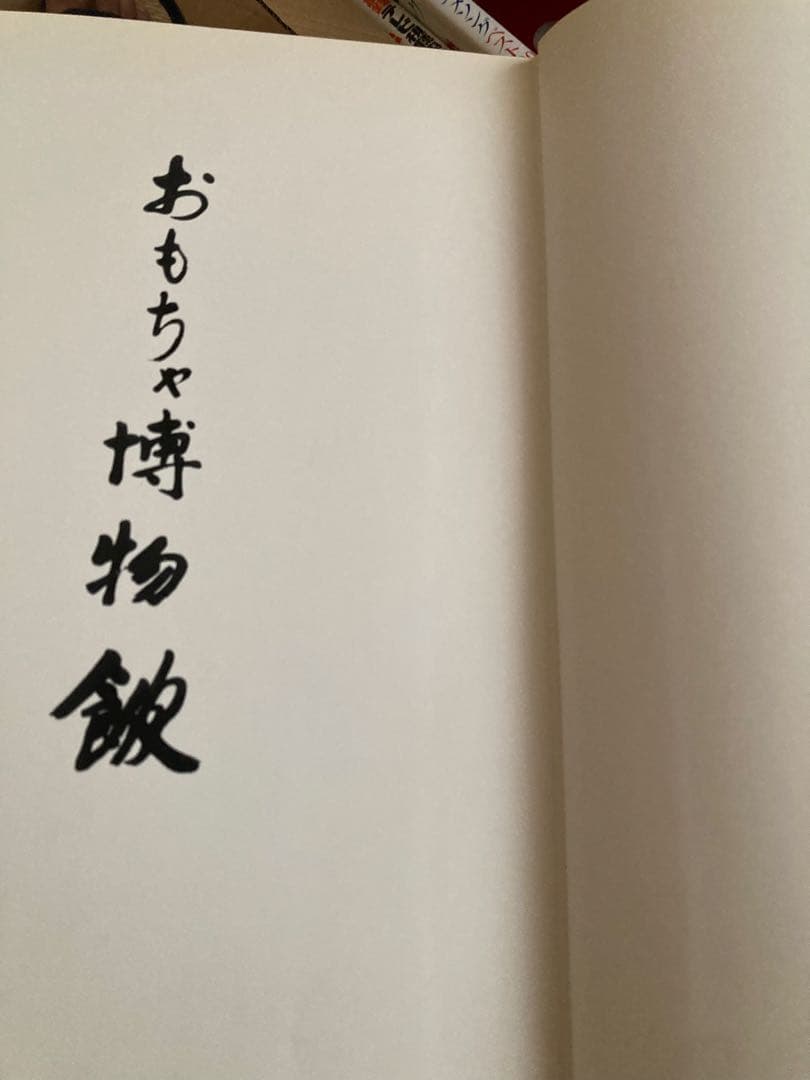 おもちゃ博物館